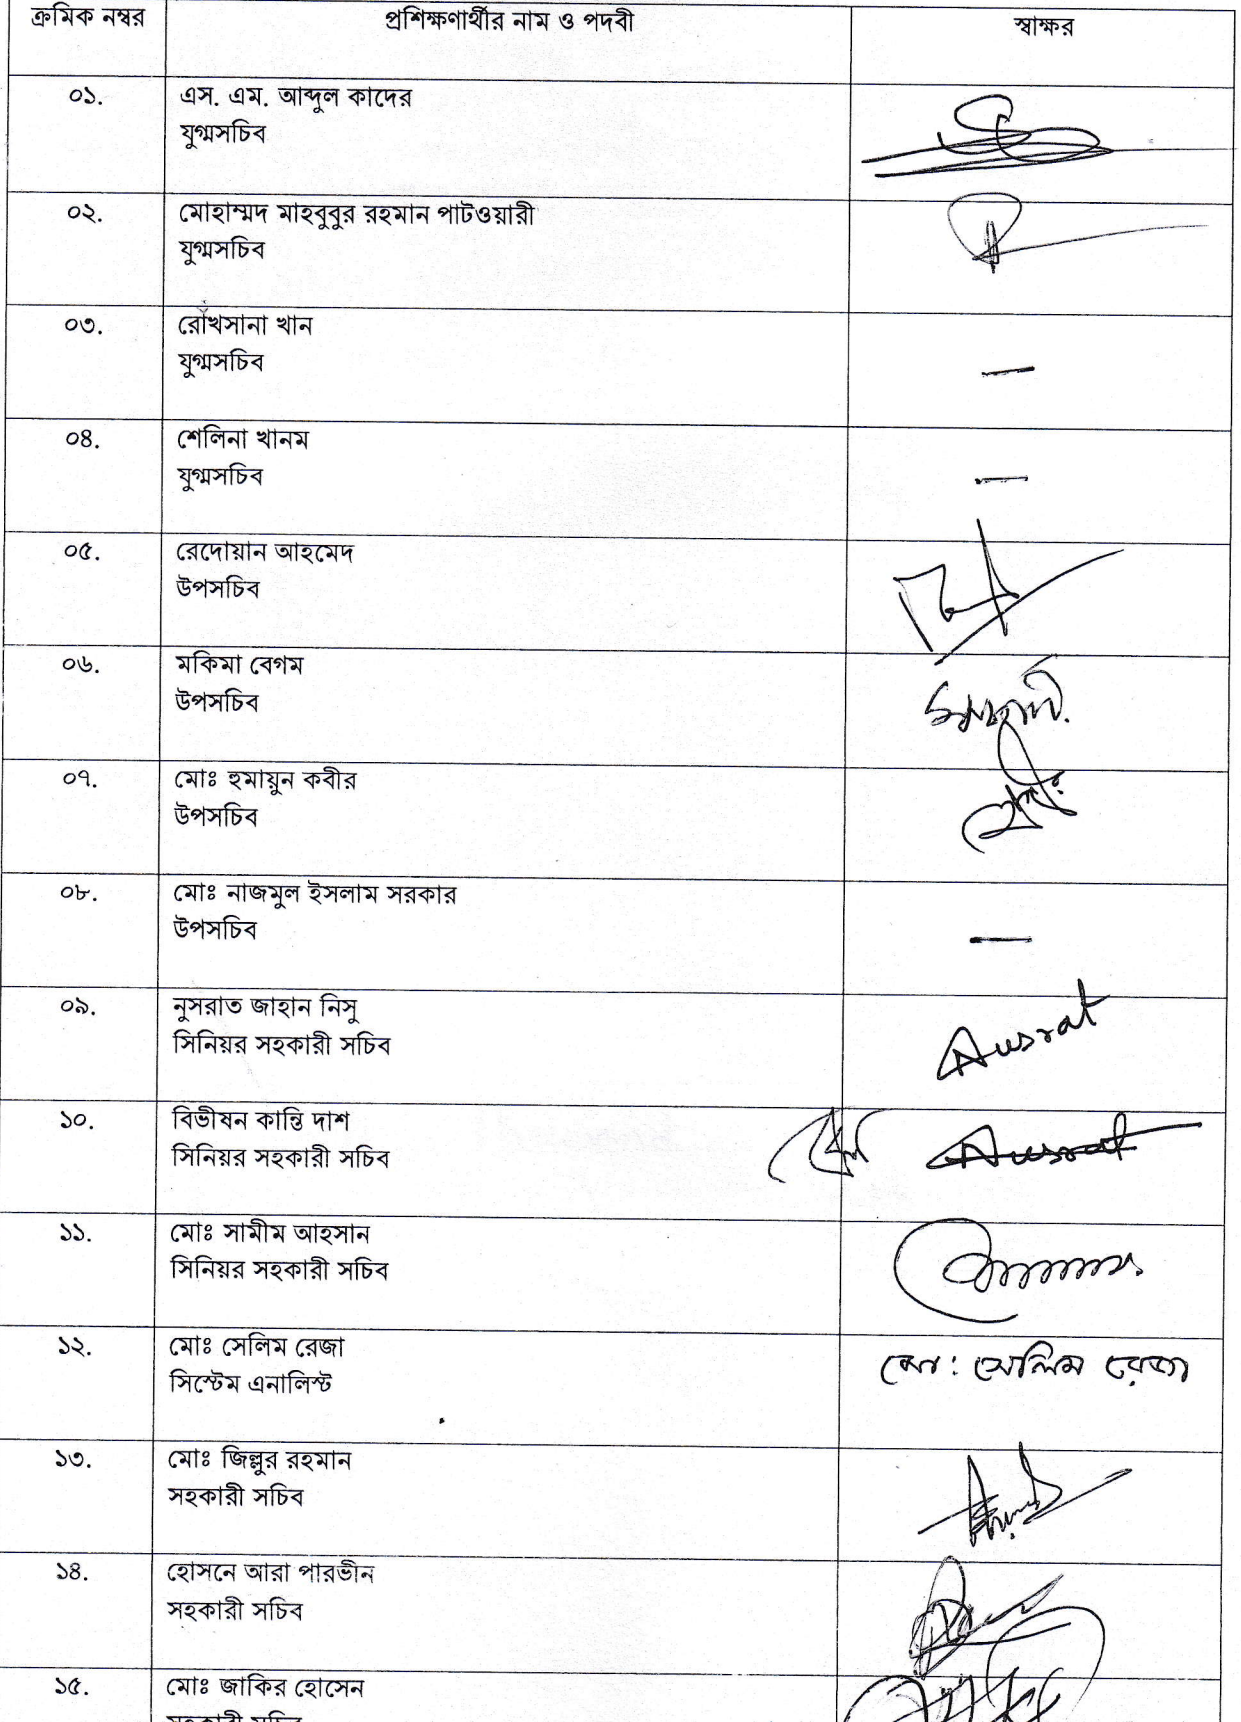 ক্রমিক নম্বর প্রশিক্ষণার্থীর নাম ও পদবী স্বাক্ষর
০১. এস. এম. আব্দুল কাদের
যুগ্মসচিব
০২. মোহাম্মদ মাহবুবুর রহমান পাটওয়ারী
যুগ্মসচিব
০৩. রোখসানা খান
যুগ্মসচিব
—
০৪. শেলিনা খানম
যুগ্মসচিব
—
০৫. রেদোয়ান আহমেদ
উপসচিব
০৬. মকিমা বেগম
উপসচিব
০৭. মোঃ হুমায়ুন কবীর
উপসচিব
০৮. মোঃ নাজমুল ইসলাম সরকার
উপসচিব
—
০৯. নুসরাত জাহান নিসু
সিনিয়র সহকারী সচিব
Nusrat
১০. বিভীষন কান্তি দাশ
সিনিয়র সহকারী সচিব
Nusrat
১১. মোঃ সামীম আহসান
সিনিয়র সহকারী সচিব
১২. মোঃ সেলিম রেজা
সিস্টেম এনালিস্ট
মো: সেলিম রেজা
১৩. মোঃ জিল্লুর রহমান
সহকারী সচিব
১৪. হোসনে আরা পারভীন
সহকারী সচিব
১৫. মোঃ জাকির হোসেন
সহকারী সচিব